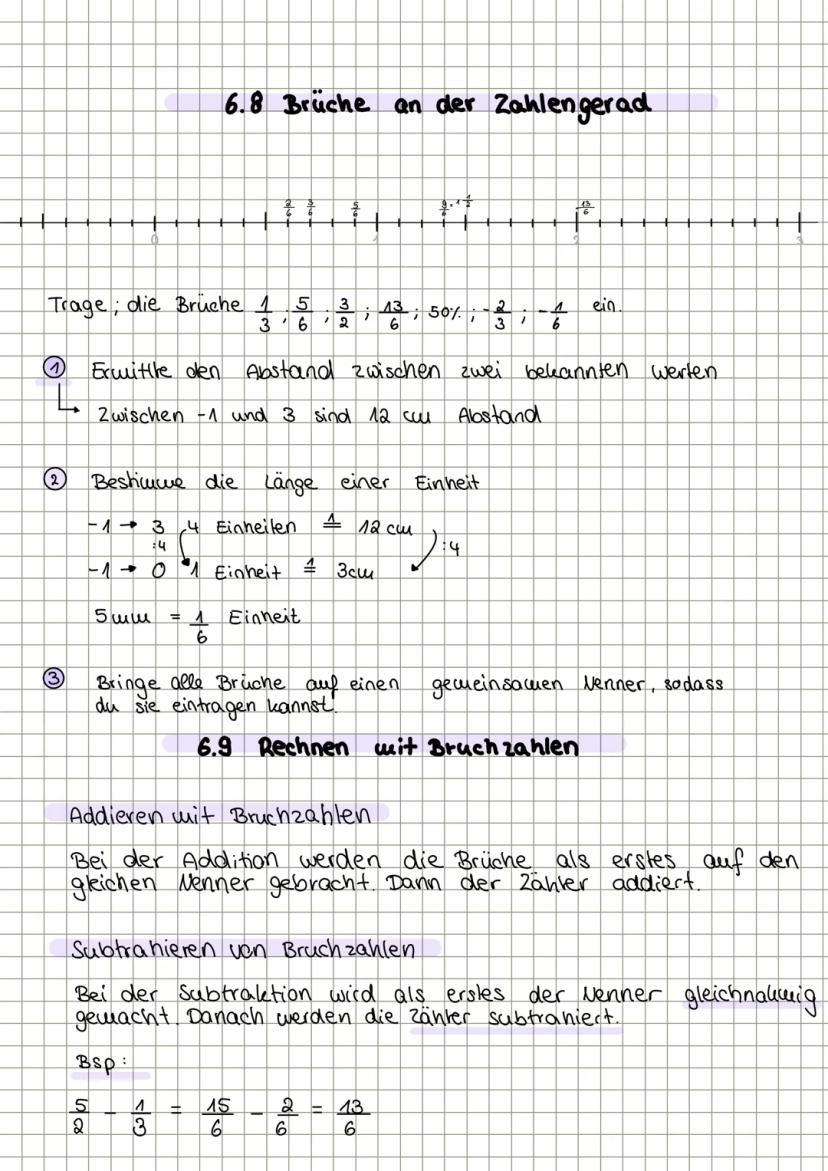 6.8 Brüche an der Zahlengerad
2/6 3/6 5/6 9/6 = 1 1/2 13/6
0 1 2 3
Trage ; die Brüche 1/3 ; 5/6 ; 3/2 ; 13/6 ; 50% ; -2/3 ; -1/6 ein.
① Ermittle den Abstand zwischen zwei bekannten Werten
Zwischen -1 und 3 sind 12 cm Abstand
② Bestimme die Länge einer Einheit
-1 → 3 4 Einheiten ≙ 12 cm
:4 :4
-1 → 0 1 Einheit ≙ 3cm
5mm = 1/6 Einheit
③ Bringe alle Brüche auf einen gemeinsamen Nenner, sodass
du sie eintragen kannst.
6.9 Rechnen mit Bruchzahlen
Addieren mit Bruchzahlen
Bei der Addition werden die Brüche als erstes auf den
gleichen Nenner gebracht. Dann der Zähler addiert.
Subtrahieren von Bruchzahlen
Bei der Subtraktion wird als erstes der Nenner gleichnahmig
gemacht. Danach werden die Zähler subtrahiert.
Bsp:
5/2 - 1/3 = 15/6 - 2/6 = 13/6